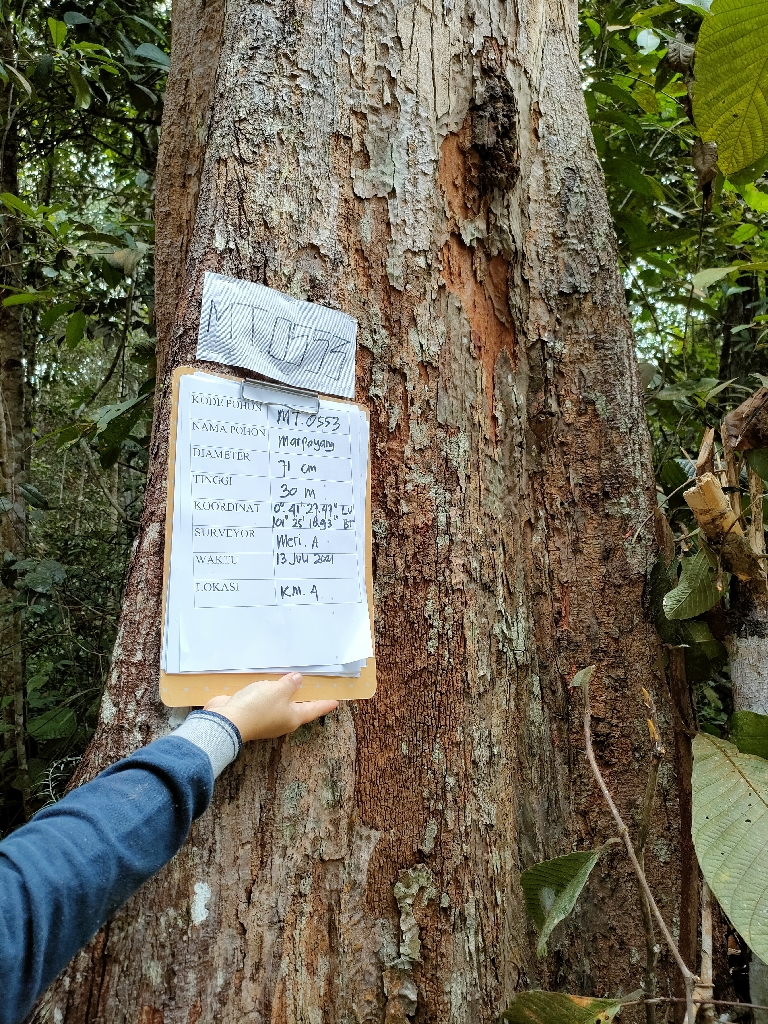 MT 0553
KODE POHON MT. 0553
NAMA POHON Marpoyang
DIAMETER 71 cm
TINGGI 30 m
KOORDINAT 0° 41' 27.47" LU
101° 25' 18.93" BT
SURVEYOR Meri. A
WAKTU 13 Juli 2021
LOKASI KM. 4